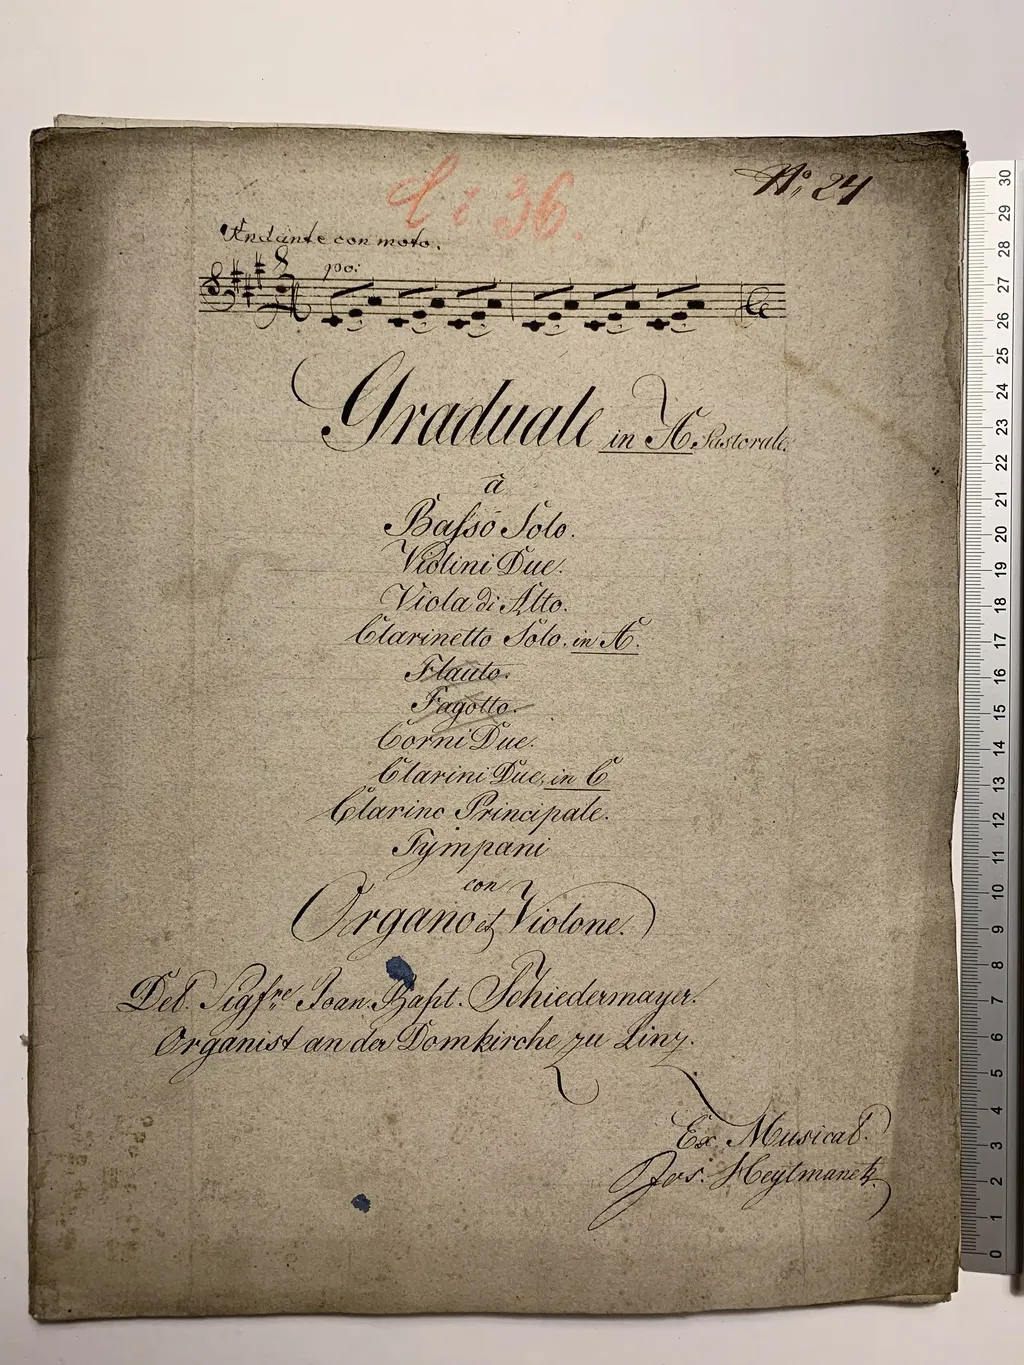 Nº, 24
36.
Andante con moto.
po:
Graduale in A. Pastorale.
à
Baſso Solo.
Violini Due.
Viola di Alto.
Clarinetto Solo. in A.
Flauto.
Fagotto.
Corni Due.
Clarini Due, in C
Clarino Principale.
Tympani
con
Organo et Violone.
Del. Sigſre Joan. Bapt. Schiedermayer.
Organist an der Domkirche zu Linz.
Ex Musical.
Jos.
30
29
28
27
26
25
24
23
22
21
20
19
18
17
16
15
14
13
12
11
10
9
8
7
6
5
4
3
2
1
0